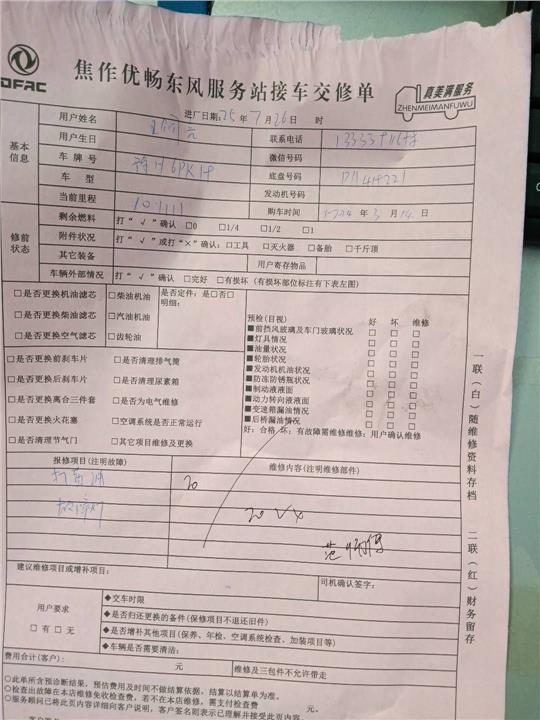 DFAC
焦作优畅东风服务站接车交修单
真美满服务
ZHENMEIMANFUWU
进厂日期:25年7月26日 时
基本信息
用户姓名
联系电话
用户生日
微信号码
车牌号
底盘号码
车型
发动机号码
当前里程
购车时间 年3月14日
修前状态
剩余燃料 打“√”确认 □0 □1/4 □1/2 □1
附件状况 打“√”或打“×”确认:□工具 □灭火器 □备胎 □千斤顶
其它装备 用户寄存物品
车辆外部情况 打“√”确认 □完好 □有损坏(有损坏部位标注有下表左图)
□是否更换机油滤芯 □柴油机油 是否定件:是□否□
明细:
□是否更换柴油滤芯 □汽油机油
□是否更换空气滤芯 □齿轮油
□是否更换前刹车片 □是否清理排气筒
□是否更换后刹车片 □是否清理尿素箱
□是否更换离合三件套 □是否为电气维修
□是否更换火花塞 □空调系统是否正常运行
□是否清理节气门 □其它项目维修及更换
预检(目视) 好 坏 维修
■前挡风玻璃及车门玻璃状况 □ □ □
■灯具情况 □ □ □
■油量状况 □ □ □
■轮胎状况 □ □ □
■发动机机油状况 □ □ □
■防冻防锈瓶状况 □ □ □
■制动液液面 □ □ □
■动力转向液液面 □ □ □
■变速箱漏油情况 □ □ □
■后桥漏油情况 □ □ □
好:合格 坏:有故障需维修维修:用户确认维修
报修项目(注明故障) 维修内容(注明维修部件)
20
故障灯
建议维修项目或增补项目:
司机确认签字:
用户要求
□有□无
◆交车时限
◆是否归还更换的备件(保修项目不退还旧件)
◆是否增补其他项目(保养、年检、空调系统检查、加装项目等)
◆车辆是否需要清洁:
费用合计(客户): 元 维修及三包件不允许带走
○此单所含预诊断结果,预估费用及时间不做结算依据,结算以结算单为准。
○检查出故障在本店维修免收检查费,若不在本店维修,需支付检查费 元。
○服务顾问已将此页内容详细向客户说明,客户签名则表示已理解并接受此页内容。
一联(白)随维修资料存档
二联(红)财务留存